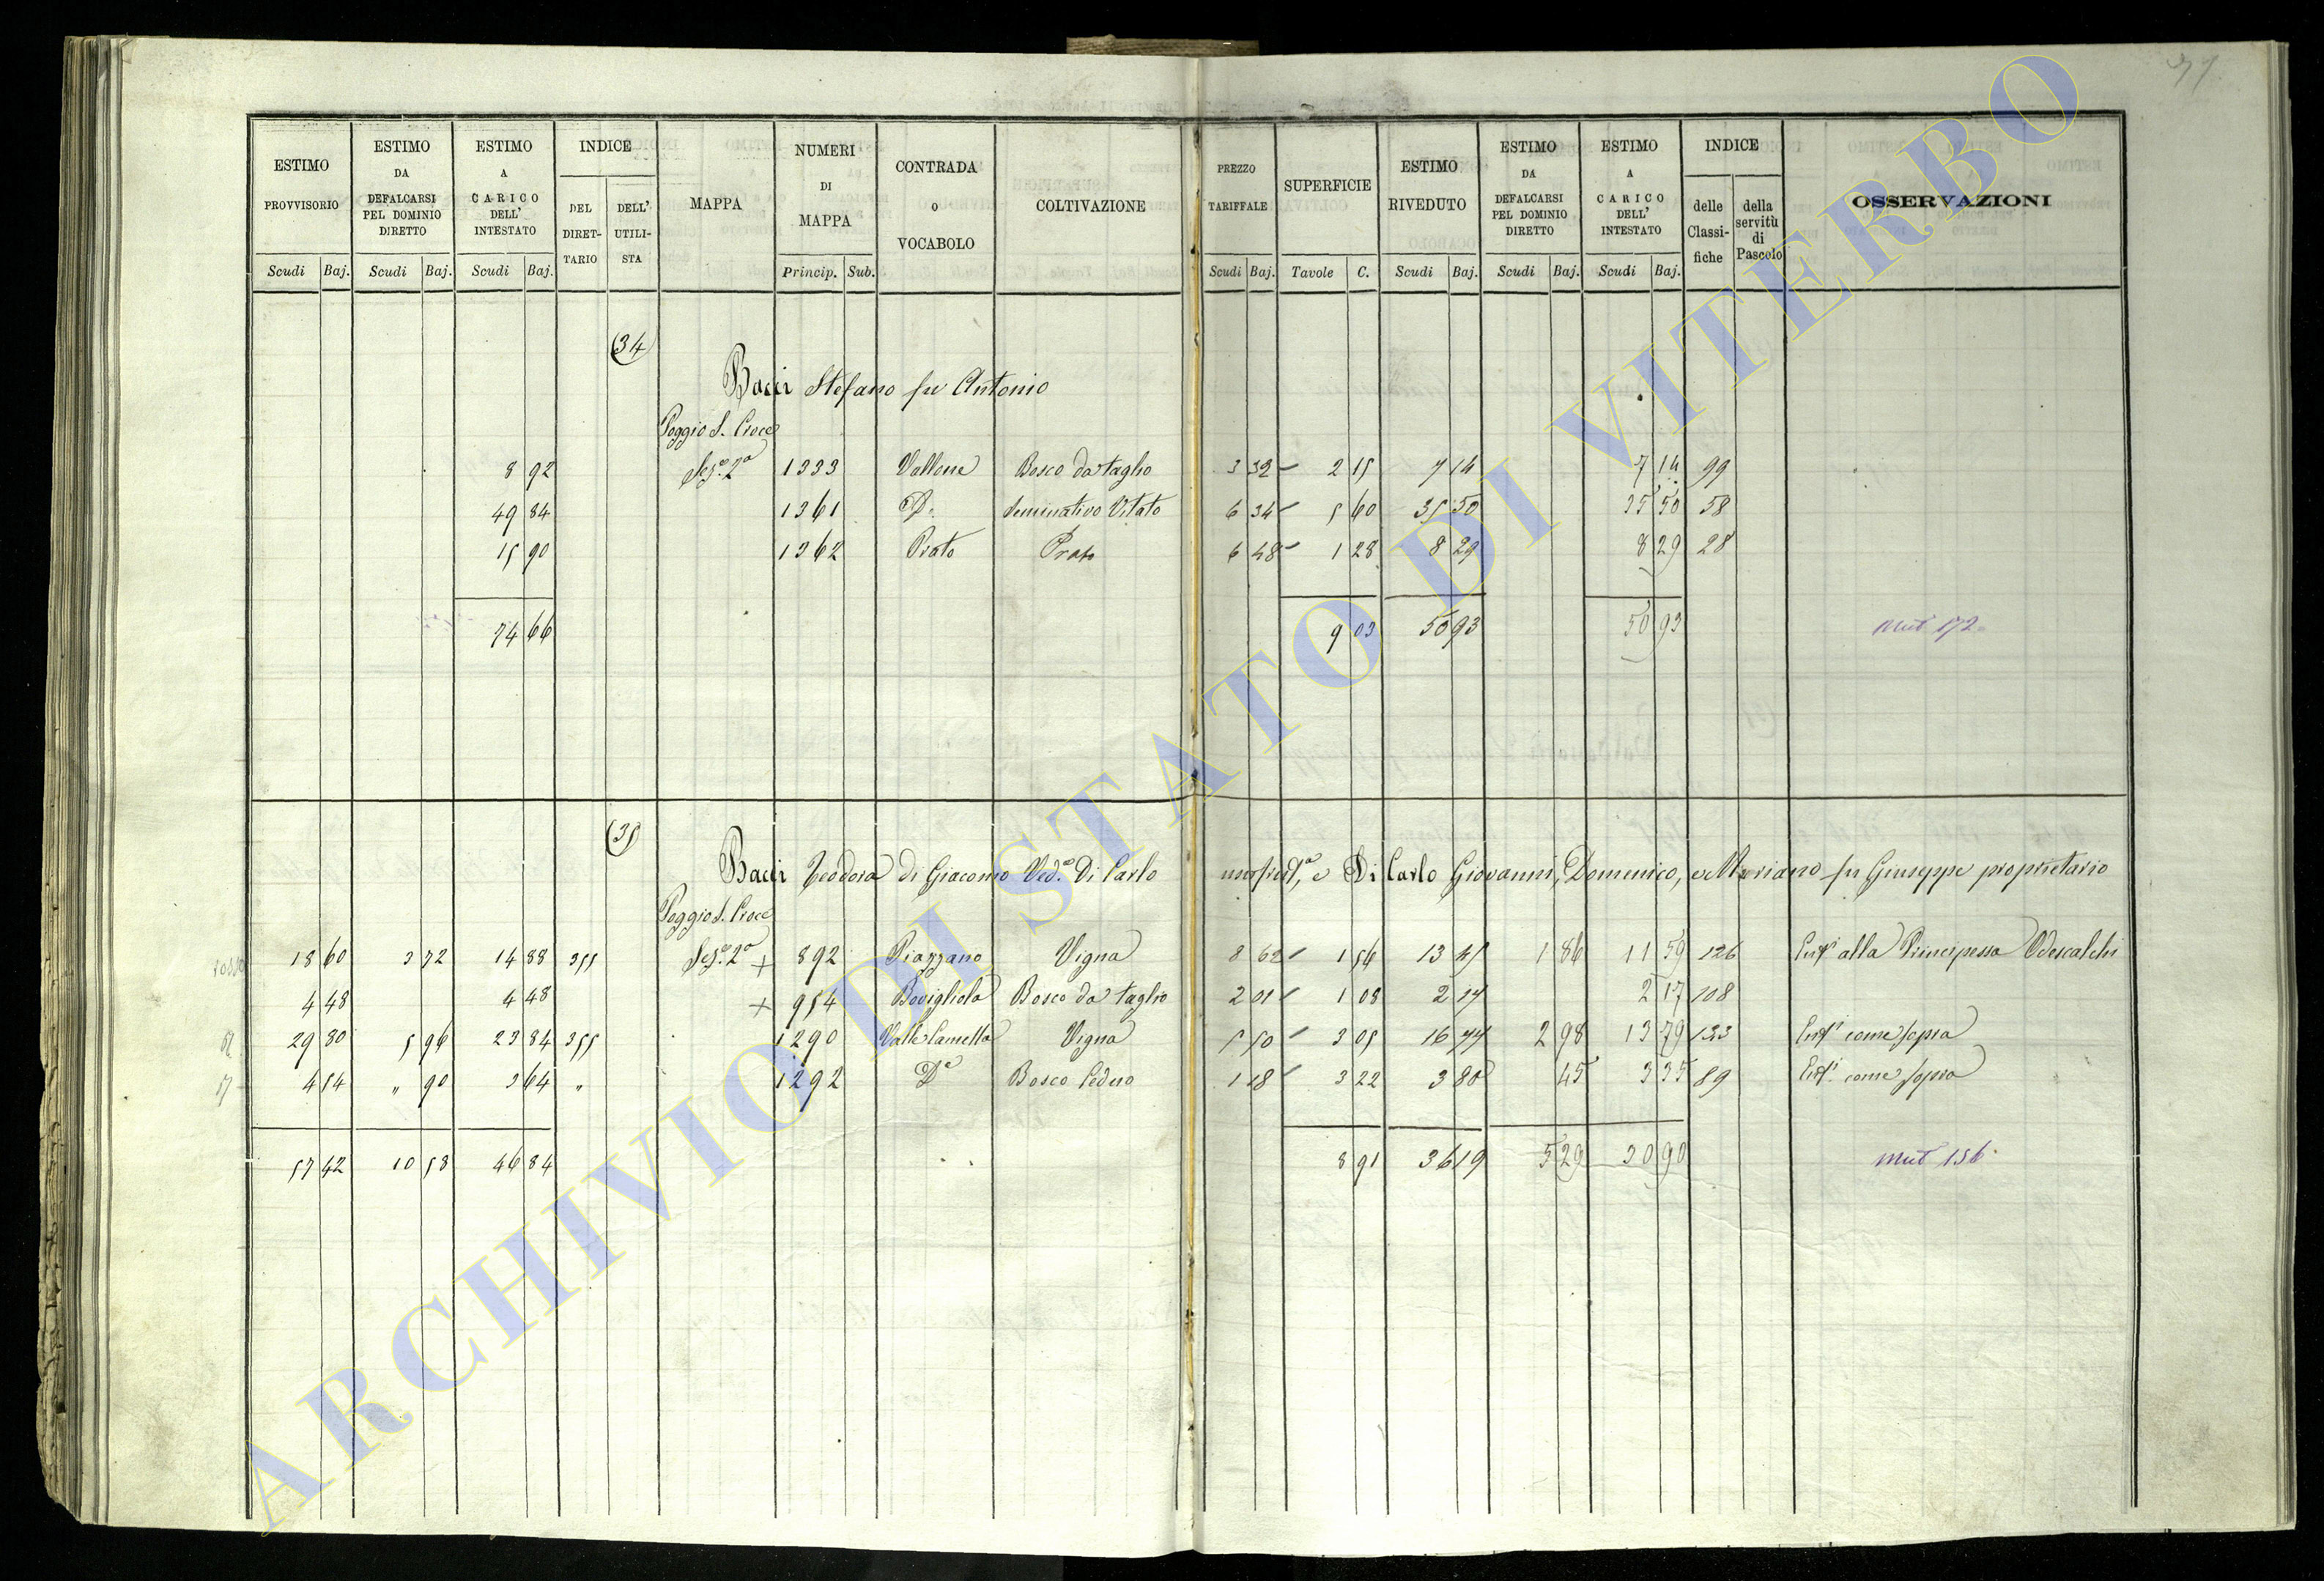 77
ESTIMO PROVVISORIO Scudi Baj. | ESTIMO DA DEFALCARSI PEL DOMINIO DIRETTO Scudi Baj. | ESTIMO A CARICO DELL' INTESTATO Scudi Baj. | INDICE DEL DIRET-TARIO | DELL' UTILI-STA | MAPPA | NUMERI DI MAPPA Princip. Sub. | CONTRADA O VOCABOLO | COLTIVAZIONE | PREZZO TARIFFALE Scudi Baj. | SUPERFICIE Tavole C. | ESTIMO RIVEDUTO Scudi Baj. | ESTIMO DA DEFALCARSI PEL DOMINIO DIRETTO Scudi Baj. | ESTIMO A CARICO DELL' INTESTATO Scudi Baj. | INDICE delle Classi-fiche | della servitù di Pascolo | OSSERVAZIONI
34
Bacci Stefano fu Antonio
Poggio S. Croce
8 92 Sez.e 2a 1333 Vallone Bosco da taglio 3 32 2 15 7 14 7 14 99
49 84 1361 Do Seminativo Vitato 6 34 5 60 35 50 35 50 58
15 90 1362 Prato Prato 6 48 1 28 8 29 8 29 28
74 66 9 03 50 93 50 93 Mut 172
35
Bacci Teodora di Giacomo Ved.a Di Carlo usufrutt.a, e Di Carlo Giovanni, Domenico, e Mariano fu Giuseppe proprietario
Poggio S. Croce
18 60 3 72 14 88 355 Sez.e 2a + 892 Piazzano Vigna 8 62 1 56 13 45 1 86 11 59 126 Enf.i alla Principessa Odescalchi
4 48 4 48 + 954 Bovigliola Bosco da taglio 2 01 1 08 2 17 2 17 108
29 80 5 96 23 84 355 1290 Valle Camella Vigna 5 50 3 05 16 77 2 98 13 79 133 Enf.i come sopra
4 54 " 90 3 64 " 1292 Do Bosco Ceduo 1 18 3 22 3 80 45 3 35 89 Enf.i come sopra
57 42 10 58 46 84 8 91 36 19 5 29 30 90 Mut 156
ARCHIVIO DI STATO DI VITERBO